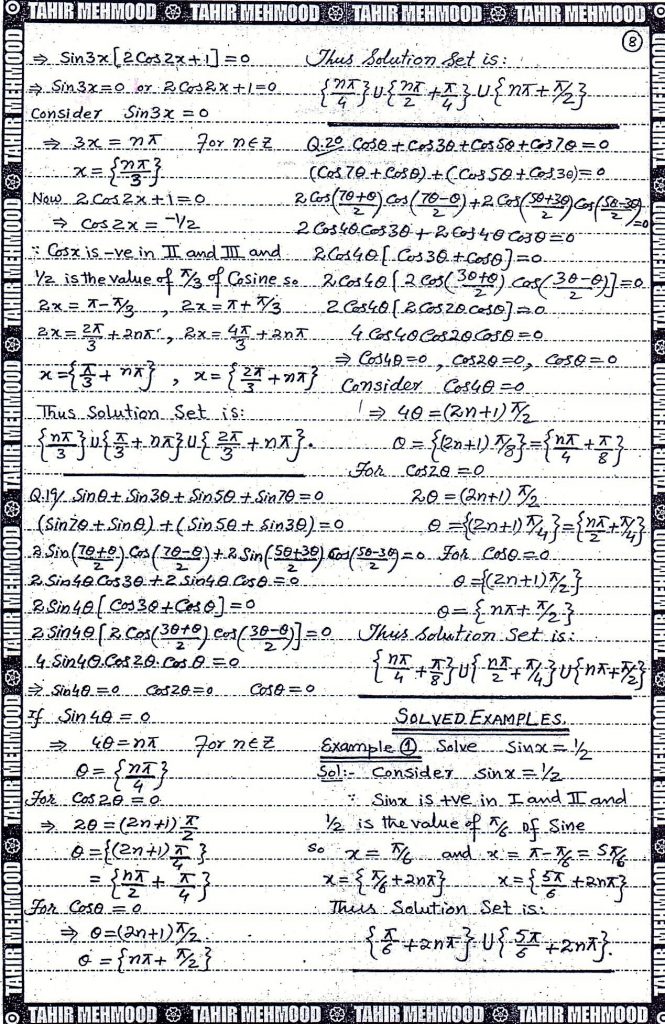 TAHIR MEHMOOD TAHIR MEHMOOD TAHIR MEHMOOD TAHIR MEHMOOD
8
⇒ Sin3x[2Cos2x+1]=0
⇒ Sin3x=0 or 2Cos2x+1=0
Consider Sin3x=0
⇒ 3x = nπ For n∈Z
x = {nπ/3}
Now 2Cos2x+1=0
⇒ Cos2x = -1/2
∵ Cosx is -ve in II and III and
1/2 is the value of π/3 of Cosine so
2x = π-π/3 , 2x = π+π/3
2x = 2π/3 + 2nπ , 2x = 4π/3 + 2nπ
x = {π/3 + nπ} , x = {2π/3 + nπ}
Thus Solution Set is:
{nπ/3}∪{π/3 + nπ}∪{2π/3 + nπ}.
Q.19/ Sinθ+Sin3θ+Sin5θ+Sin7θ=0
(Sin7θ+Sinθ)+(Sin5θ+Sin3θ)=0
2Sin(7θ+θ/2)Cos(7θ-θ/2)+2Sin(5θ+3θ/2)Cos(5θ-3θ/2)=0
2Sin4θCos3θ+2Sin4θCosθ=0
2Sin4θ[Cos3θ+Cosθ]=0
2Sin4θ[2Cos(3θ+θ/2)Cos(3θ-θ/2)]=0
4Sin4θ.Cos2θ.Cosθ=0
⇒ Sin4θ=0 Cos2θ=0 Cosθ=0
If Sin4θ=0
⇒ 4θ=nπ For n∈Z
θ = {nπ/4}
For Cos2θ=0
⇒ 2θ=(2n+1)π/2
θ={(2n+1)π/4}
= {nπ/2 + π/4}
For Cosθ=0
⇒ θ=(2n+1)π/2
θ = {nπ+π/2}
Thus Solution Set is:
{nπ/4}∪{nπ/2+π/4}∪{nπ+π/2}
Q.20 Cosθ+Cos3θ+Cos5θ+Cos7θ=0
(Cos7θ+Cosθ)+(Cos5θ+Cos3θ)=0
2Cos(7θ+θ/2)Cos(7θ-θ/2)+2Cos(5θ+3θ/2)Cos(5θ-3θ/2)=0
2Cos4θCos3θ+2Cos4θCosθ=0
2Cos4θ[Cos3θ+Cosθ]=0
2Cos4θ[2Cos(3θ+θ/2)Cos(3θ-θ/2)]=0
2Cos4θ[2Cos2θCosθ]=0
4Cos4θCos2θCosθ=0
⇒ Cos4θ=0, Cos2θ=0, Cosθ=0
Consider Cos4θ=0
⇒ 4θ=(2n+1)π/2
θ={(2n+1)π/8}={nπ/4+π/8}
For Cos2θ=0
2θ=(2n+1)π/2
θ={(2n+1)π/4}={nπ/2+π/4}
For Cosθ=0
θ={(2n+1)π/2}
θ={nπ+π/2}
Thus Solution Set is:
{nπ/4+π/8}∪{nπ/2+π/4}∪{nπ+π/2}
SOLVED EXAMPLES.
Example 1 Solve Sinx=1/2
Sol:- Consider Sinx=1/2
∵ Sinx is +ve in I and II and
1/2 is the value of π/6 of Sine
so x=π/6 and x=π-π/6=5π/6
x={π/6+2nπ} x={5π/6+2nπ}
Thus Solution Set is:
{π/6+2nπ}∪{5π/6+2nπ}.
TAHIR MEHMOOD TAHIR MEHMOOD TAHIR MEHMOOD TAHIR MEHMOOD